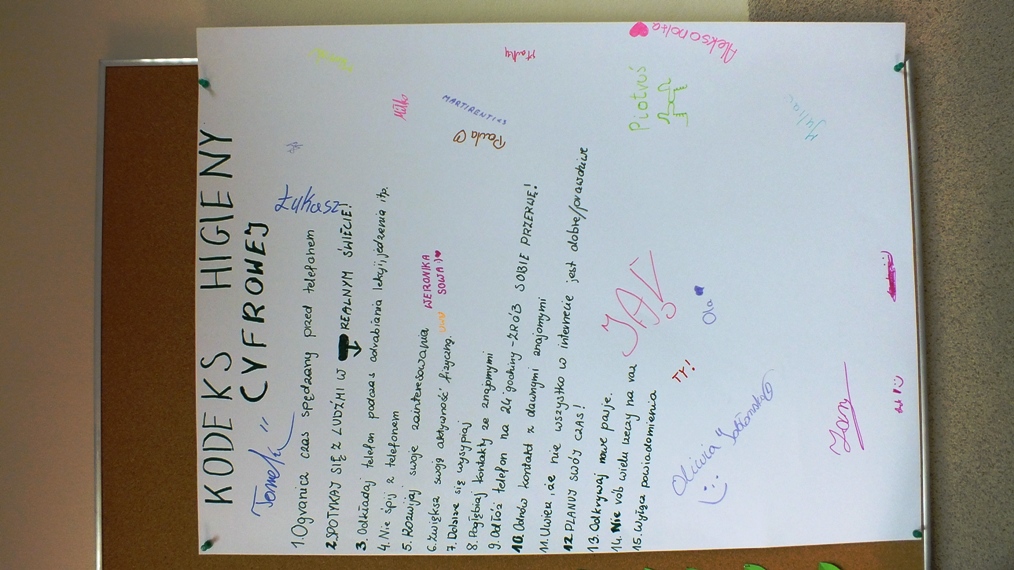 KODEKS HIGIENY
CYFROWEJ
"Tomek"
Łukasz
1. Ogranicz czas spędzany przed telefonem
2. SPOTYKAJ SIĘ Z LUDŹMI W REALNYM ŚWIECIE!
3. Odkładaj telefon podczas odrabiania lekcji, jedzenia itp.
4. Nie śpij z telefonem
5. Rozwijaj swoje zainteresowania
6. Zwiększa swoją aktywność fizyczną
WERONIKA
SOWA :)
7. Dobrze się wysypiaj
8. Pogłębiaj kontakty ze znajomymi
9. Odłóż telefon na 24 godziny - ZRÓB SOBIE PRZERWĘ!
10. Odnów kontakt z dawnymi znajomymi
11. Uważaj, że nie wszystko w internecie jest dobre/prawdziwe
12. PLANUJ SWÓJ CZAS!
13. Odkrywaj nowe pasje.
14. Nie rób wielu rzeczy na raz
15. Wyłącz powiadomienia
MARTIRENTIES
Paula
Piotruś
Aleksandra
Julia
JA
Ola
TY!
Oliwia
Jan